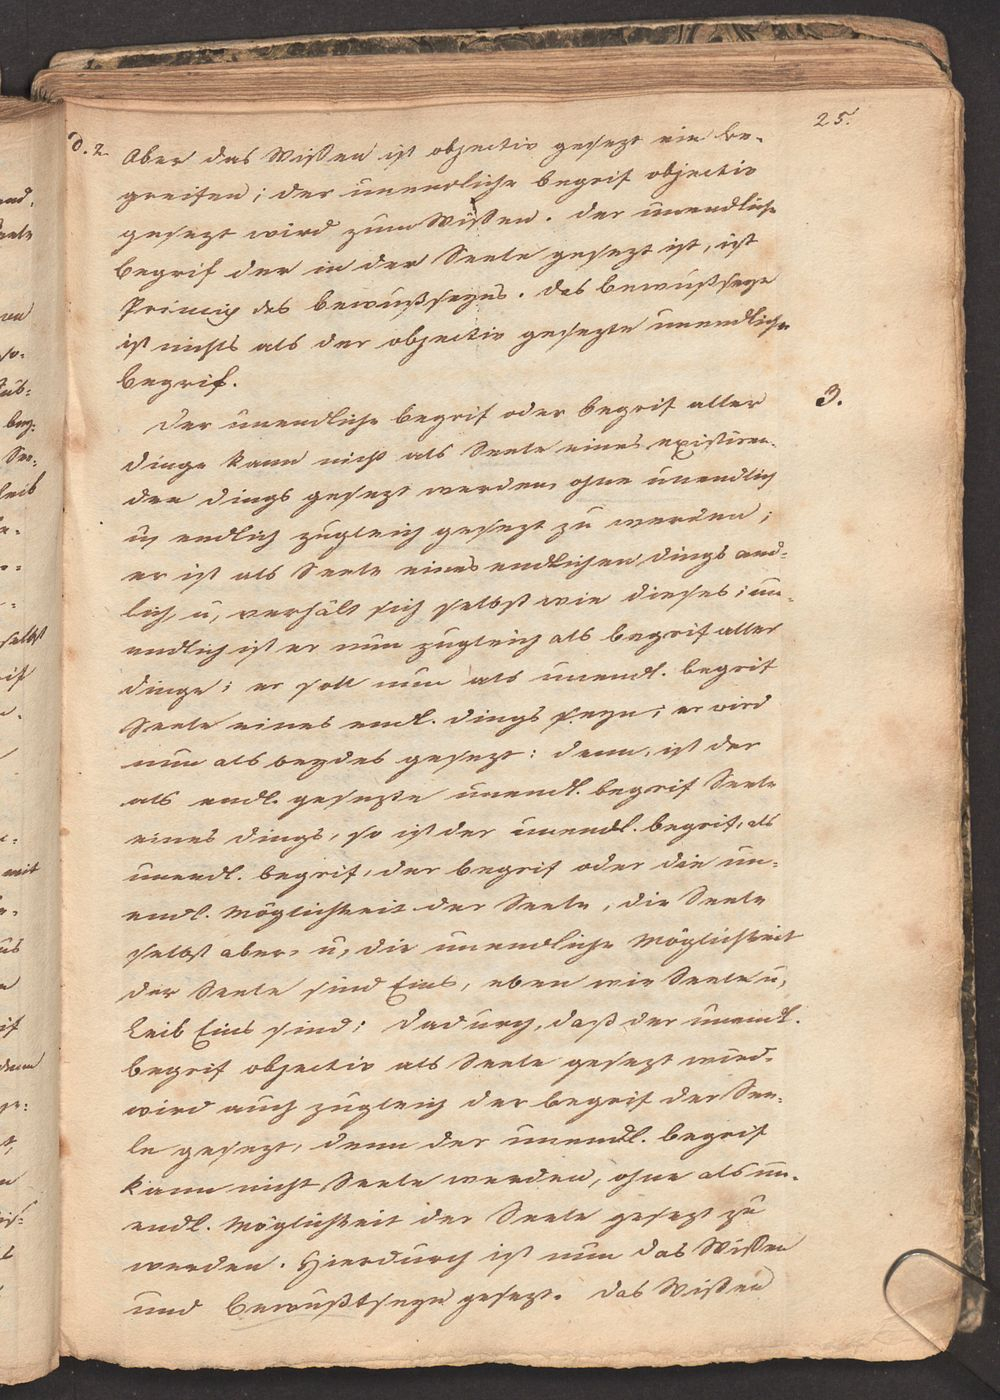 25.
d. 2. Aber das Wißen ist objectiv gesezt ein be-
greifen; der unendliche begrif objectiv
gesezt wird zum Wißen. der unendliche
begrif der in der Seele gesezt ist, ist
Princip des bewußseyns. das bewußseyn
ist nichts als der objectiv gesezte unendliche
begrif.
3.
Der unendliche begrif oder begrif aller
dinge kann nicht als Seele eines existiren-
den dings gesezt werden, ohne unendlich
u, endlich zugleich gesezt zu werden;
er ist als Seele eines endlichen dings end-
lich u, verhält sich selbst wie dieses; un-
endlich ist er nun zugleich als begrif aller
dinge; er soll nun als unendl. begrif
Seele eines endl. dings seyn; er wird
nun als beydes gesezt: denn, ist der
als endl. gesezte unendl. begrif Seele
eines dings, so ist der unendl. begrif, als
unendl. begrif, der begrif oder die un-
endl. Möglichkeit der Seele, die Seele
selbst aber, u, die unendliche Möglichkeit
der Seele sind Eins, eben wie Seele u,
Leib Eins sind; dadurch, daß der unendl.
begrif objectiv als Seele gesezt wird,
wird auch zugleich der begrif der See-
le gesezt, denn der unendl. begrif
kann nicht Seele werden, ohne als un-
endl. Möglichkeit der Seele gesezt zu
werden. Hierdurch ist nun das Wißen
und bewußtseyn gesezt. das Wißen